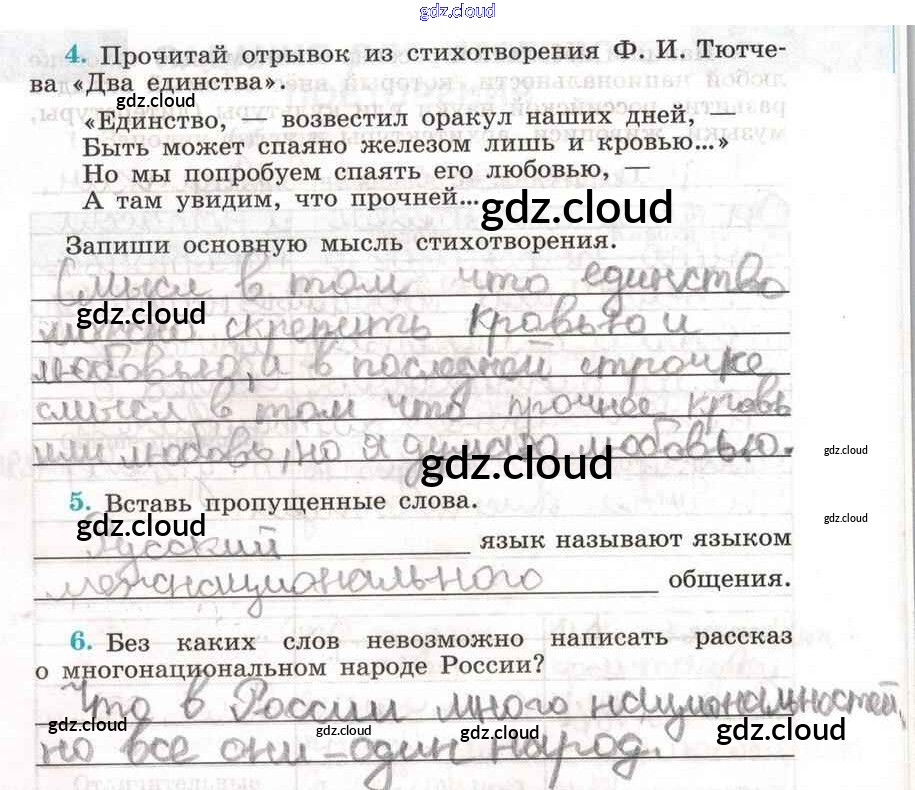 gdz.cloud
4. Прочитай отрывок из стихотворения Ф. И. Тютче-
ва «Два единства».
gdz.cloud
«Единство, — возвестил оракул наших дней, —
Быть может спаяно железом лишь и кровью...»
Но мы попробуем спаять его любовью, —
А там увидим, что прочней...
gdz.cloud
Запиши основную мысль стихотворения.
Смысл в том что единство
gdz.cloud
скрепить кровью и
любовью, и в последней строчке
смысл в том что прочнее кровь
или любовь, но я думаю любовью.
gdz.cloud
gdz.cloud
5. Вставь пропущенные слова.
gdz.cloud
gdz.cloud
Русский язык называют языком
межнационального общения.
6. Без каких слов невозможно написать рассказ
о многонациональном народе России?
Что в России много национальностей,
gdz.cloud gdz.cloud gdz.cloud gdz.cloud
но все они - один народ.
Отличительные